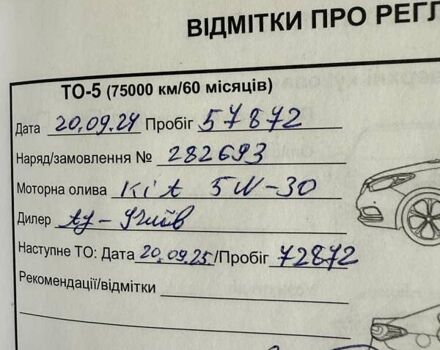 ВІДМІТКИ ПРО РЕГЛ
ТО-5 (75000 км/60 місяців)
Дата 20.09.24 Пробіг 57872
Наряд/замовлення № 282693
Моторна олива Kia 5W-30
Дилер
Наступне ТО: Дата 20.09.25/Пробіг 72872
Рекомендації/відмітки